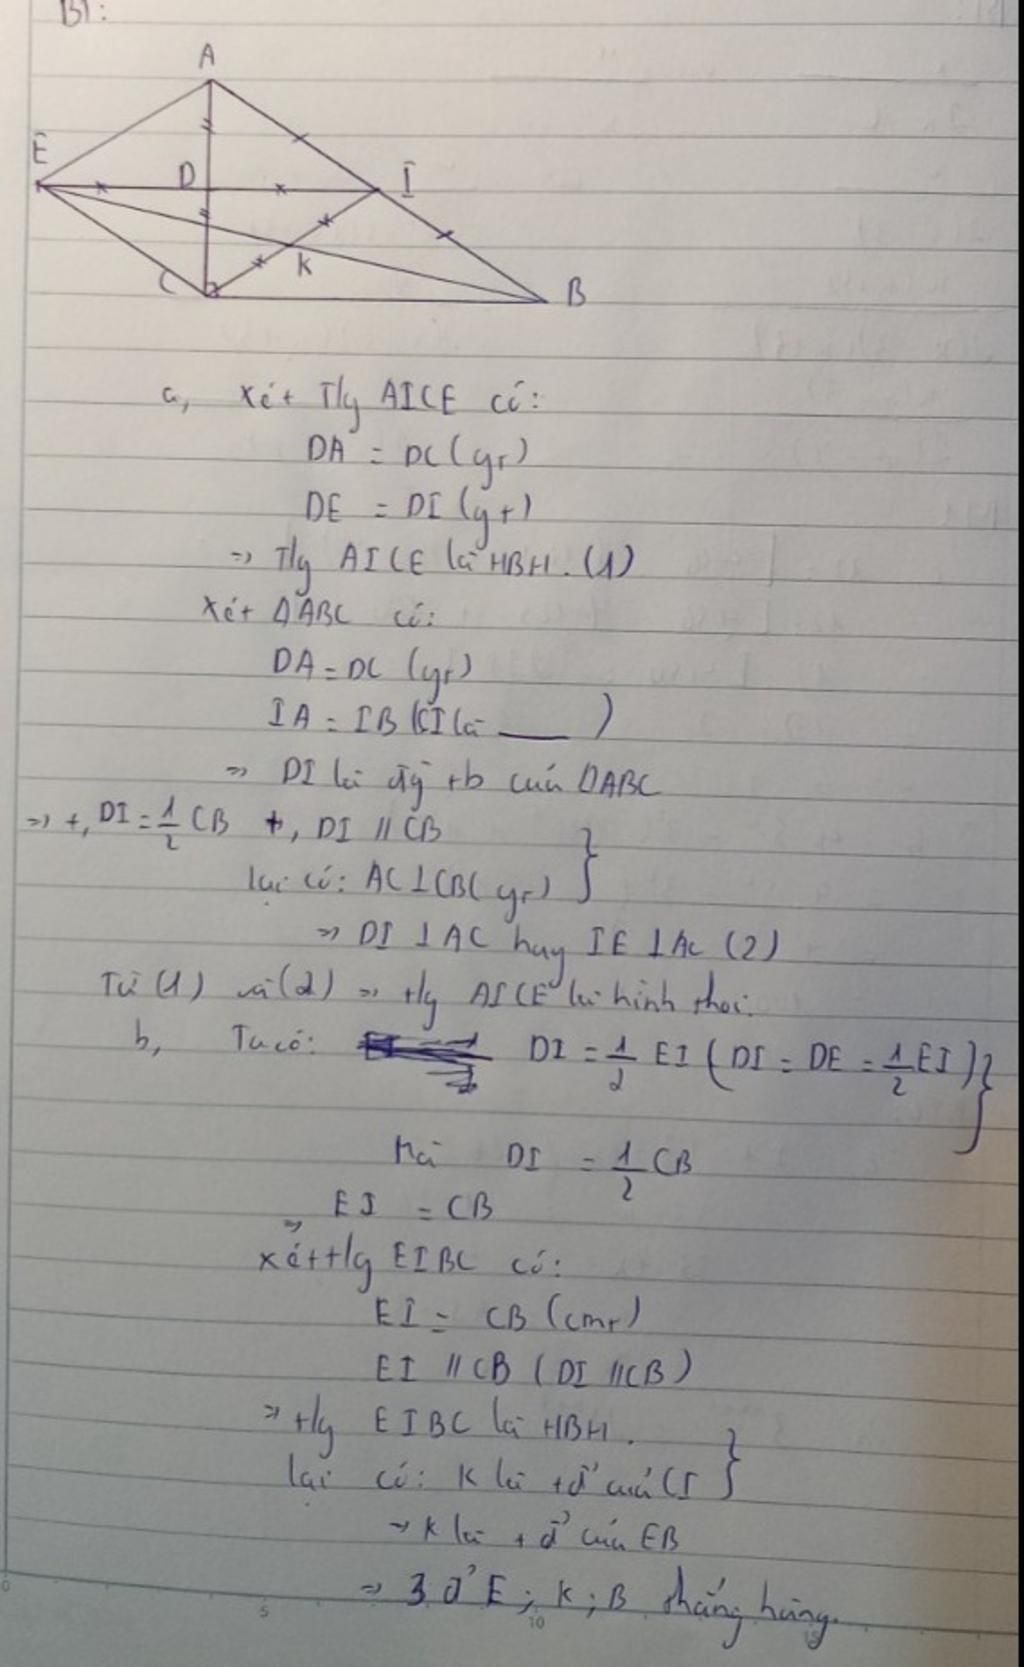 B1:
A
E
D
I
K
C
B
a, xét T/g AICE có:
DA = DC (gt)
DE = DI (gt)
=> T/g AICE là HBH. (1)
Xét ΔABC có:
DA = DC (gt)
IA = IB (CI là ___ )
=> DI là đg tb của ΔABC
=> +, DI = 1/2 CB +, DI // CB
lại có: AC ⊥ CB (gt) }
=> DI ⊥ AC hay IE ⊥ AC (2)
Từ (1) và (2) => t/g AICE là hình thoi.
b, Ta có: DI = 1/2 EI (DI = DE = 1/2 EI) }
Mà DI = 1/2 CB
=> EI = CB
xét t/g EIBC có:
EI = CB (cmt)
EI // CB (DI // CB)
=> t/g EIBC là HBH.
lại có: K là tđ' của CI }
-> K là tđ' của EB
=> 3 đ' E; K; B thẳng hàng.
0 5 10 15